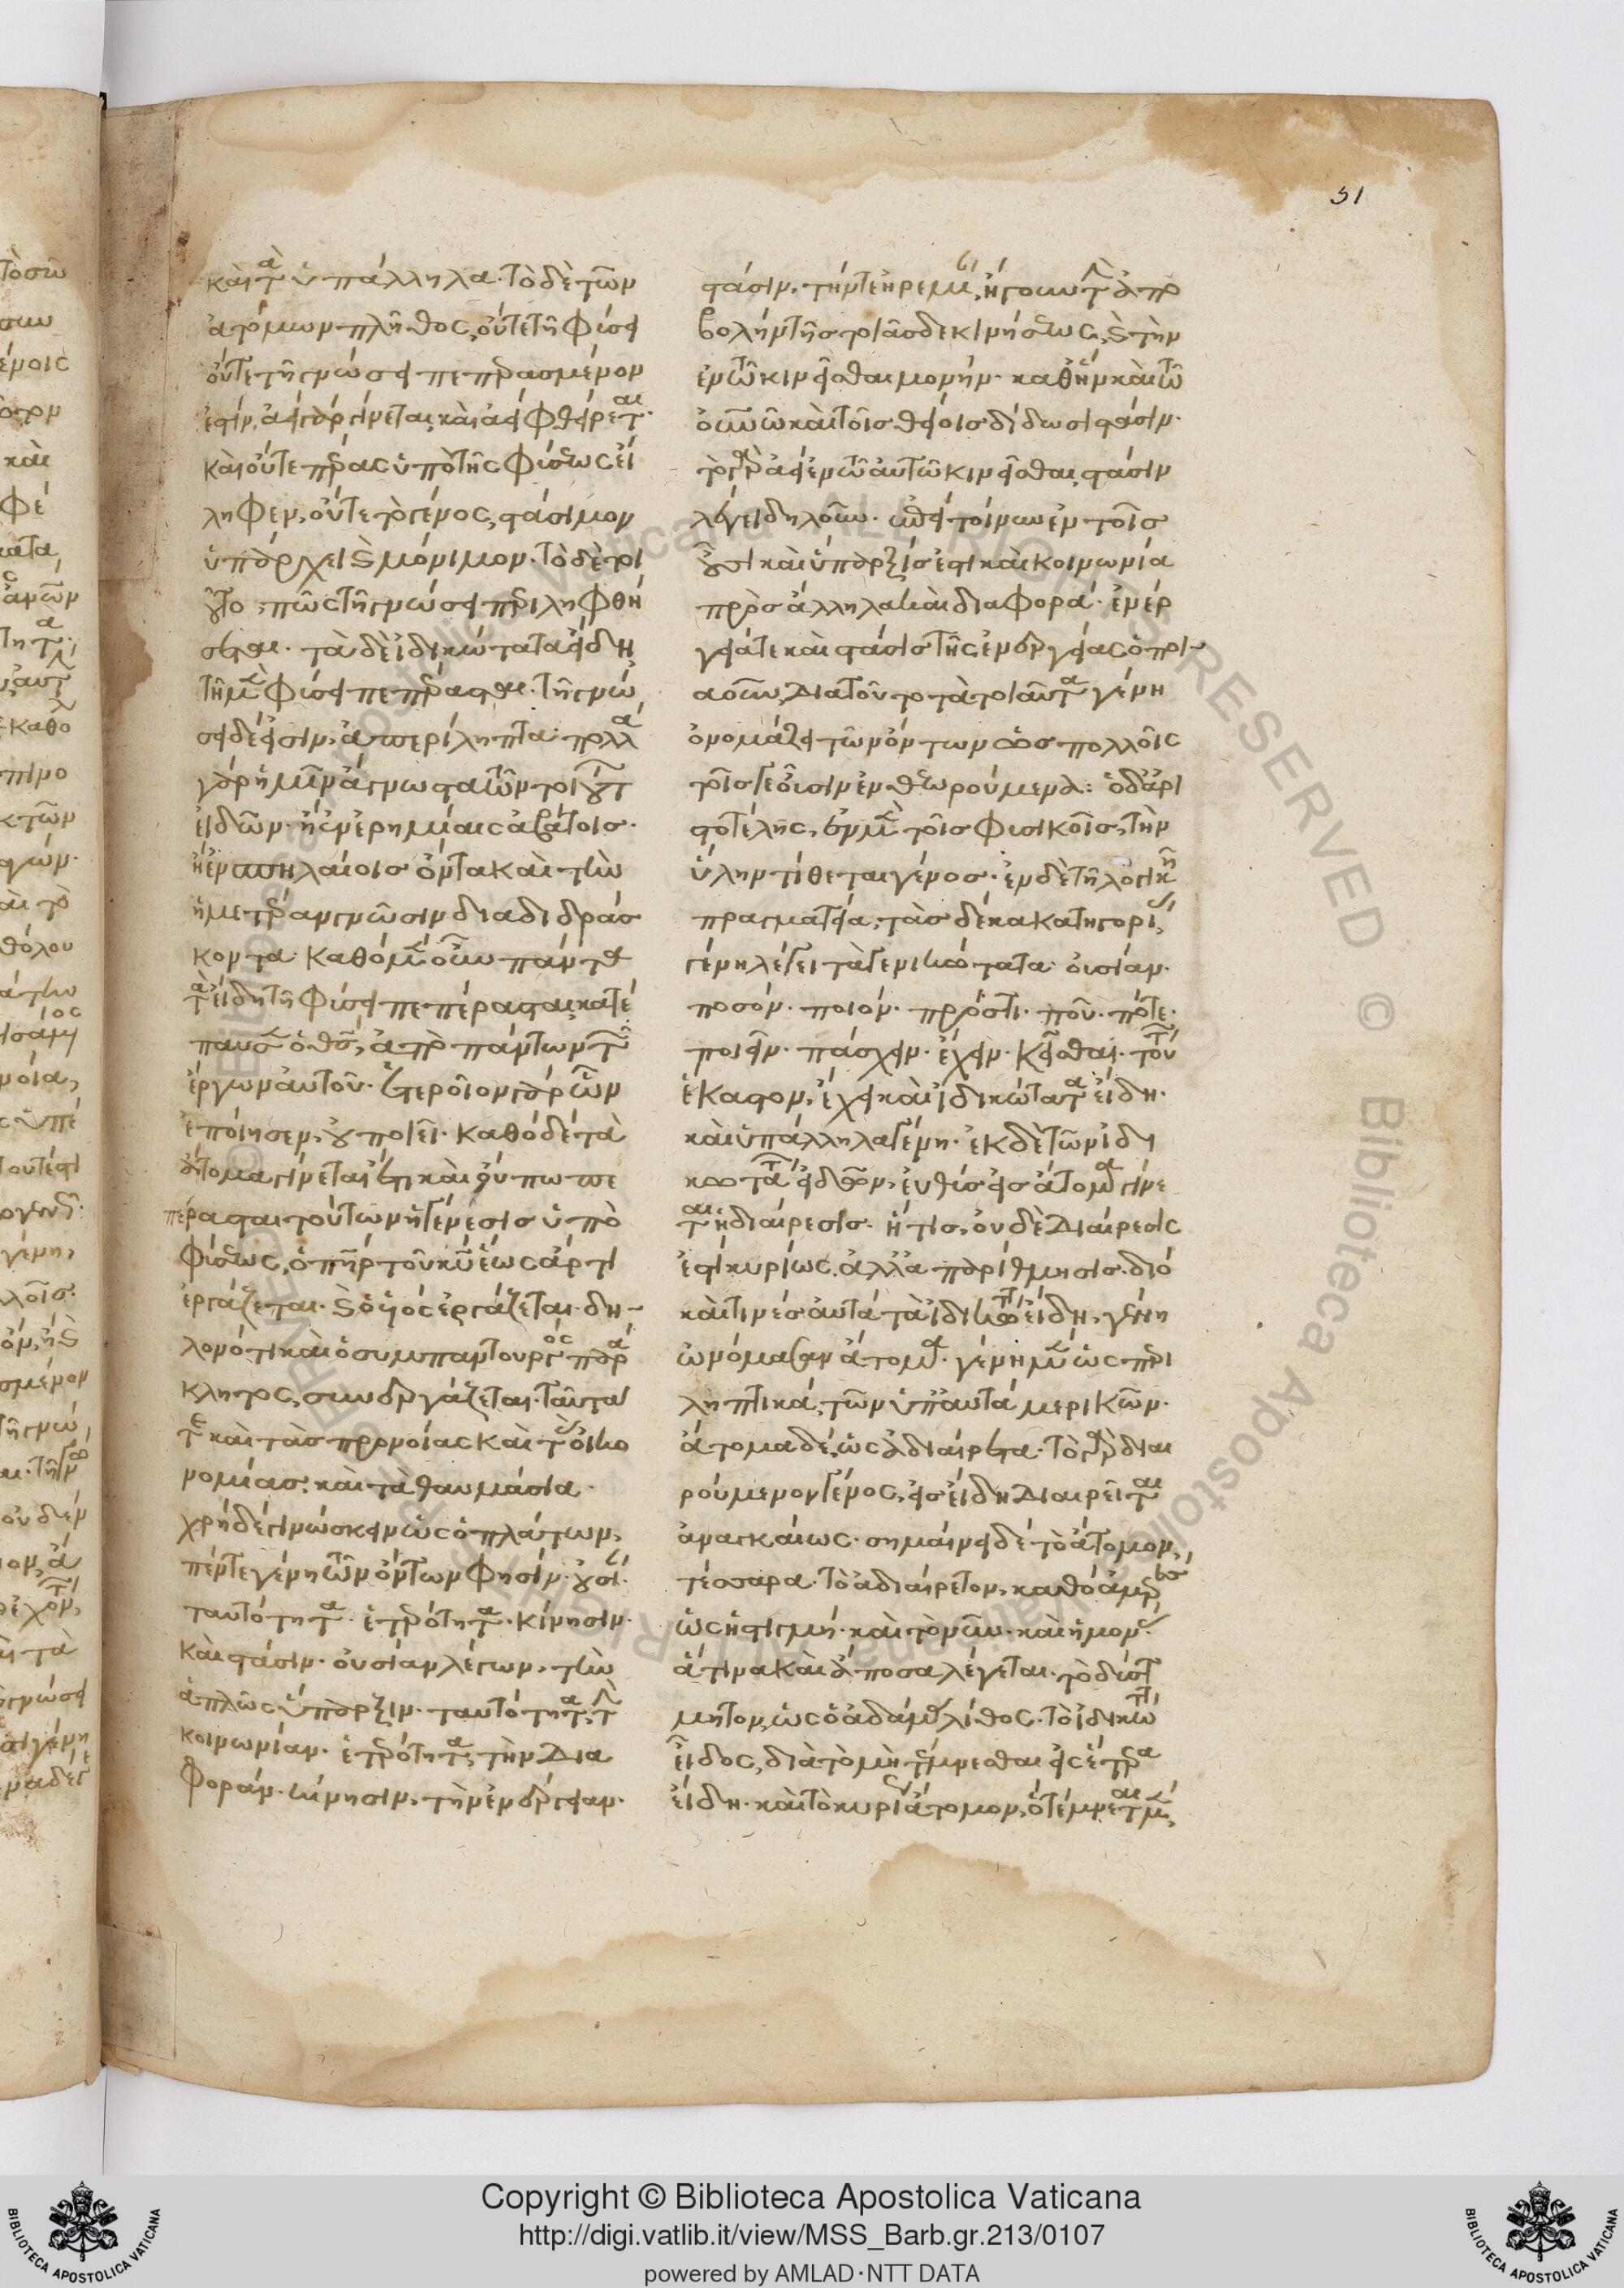 31
καὶ τὰ ὑπάλληλα· τὸ δὲ τῶν
ἀτόμων πλῆθος, οὔτε τῆ φύσει
οὔτε τῆ γνώσει πεπερασμένον
ἐστὶν, ἀεὶ γὰρ γίνεται, καὶ ἀεὶ φθείρεται·
καὶ οὔτε πέρας ὑπὸ τῆς φύσεως εἴ
ληφεν, οὔτε τὸ γένος, στάσιμον
ὑπάρχει καὶ μόνιμον· τὸ δὲ τοι
οῦτο, πῶς τῆ γνώσει περιληφθή
σεται· τὰ δὲ εἰδικώτατα εἴδη
τῆ μὲν φύσει πεπέρασται· τῆ γνώ
σει δέ εἰσιν, ἀπερίληπτα· πολλὰ
γὰρ ἡμῖν ἄγνωστα τῶν τοιούτων
εἰδῶν· ἢ ἐν ἐρημίαις ἀβάτοις·
ἢ ἐν σπηλαίοις ὄντα καὶ τὴν
ἡμετέραν γνῶσιν διαδιδράσ
κοντα· καθὸ μὲν οὖν πάντα
τὰ εἴδη τῆ φύσει πεπέρασται, κατέ
παυσεν ὁ θεὸς, ἀπὸ πάντων τῶν
ἔργων αὐτοῦ· ἑτεροῖον γὰρ ὧν
ἐποίησεν, οὐ ποιεῖ· καθὸ δὲ τὰ
ἄτομα γίνεται ἔτι καὶ οὔπω πε
πέρασται τούτων ἡ γένεσις ὑπὸ
φύσεως, ὁ πατὴρ τοῦ κυρίου ἕως ἄρτι
ἐργάζεται· καὶ ὁ υἱὸς ἐργάζεται· δη
λονότι καὶ ὁ συμπαντουργὸς παρά
κλητος, συνεργάζεται· ταῦτα
τε καὶ τὰς προνοίας καὶ τὰς οἰκο
νομίας· καὶ τὰ θαυμάσια·
χρὴ δὲ γινώσκειν ὡς ὁ πλάτων,
πέντε γένη τῶν ὄντων φησίν· οὐσίαν·
ταυτότητα· ἑτερότητα· κίνησιν·
καὶ στάσιν· οὐσίαν λέγων, τὴν
ἁπλῶς ὕπαρξιν· ταυτότητα, τὴν
κοινωνίαν· ἑτερότητα, τὴν δια
φοράν· κίνησιν, τὴν ἐνέργειαν·
στάσιν, τήν τε ἠρεμίαν, ἤγουν τὴν ἀπο
βολὴν τῆς ποιᾶσδε κινήσεως, καὶ τὴν
ἐν τῶ κινεῖσθαι μονήν· καθ' ἣν καὶ τῶ
οὐνῶ καὶ τοῖς θείοις δίδωσι στάσιν·
τὸ γὰρ ἀεὶ ἐν τῶ αὐτῶ κινεῖσθαι, στάσιν
λέγει δηλοῦν· ἐπεὶ τοίνυν ἐν τοῖς
οὖσι καὶ ὕπαρξίς ἐστι καὶ κοινωνία
πρὸς ἄλληλα καὶ διαφορά· ἐνέρ
γειά τε καὶ στάσις τῆς ἐνεργείας ὁποι
ασοῦν, διὰ τοῦτο τὰ τοιαῦτα γένη
ὀνομάζει τῶν ὄντων ὡς πολλοῖς
τοῖς γε οὖσιν ἐνθεωρούμενα: ὁ δὲ ἀρι
στοτέλης, ἐν μὲν τοῖς φυσικοῖς, τὴν
ὕλην τίθεται γένος· ἐν δὲ τῆ λογικῆ
πραγματεία, τὰς δέκα κατηγορίας,
γένη λέγει τὰ γενικώτατα· οὐσίαν·
ποσόν· ποιόν· πρόστι· ποῦ· πότε·
ποιεῖν· πάσχειν· ἔχειν· κεῖσθαι· τούτων
ἕκαστον, ἔχει καὶ εἰδικώτατα εἴδη·
καὶ ὑπάλληλα γένη· ἐκ δὲ τῶν εἰδι
κωτάτων εἰδῶν, εὐθὺς εἰς ἄτομα γίνε
ται ἡ διαίρεσις· ἥτις, οὐδὲ διαίρεσίς
ἐστι κυρίως, ἀλλὰ παρίθμησις· διό
καὶ τινὲς αὐτὰ τὰ εἰδικώτατα εἴδη, γένη
ὠνόμασαν ἄτομα· γένη μὲν ὡς περι
ληπτικά, τῶν ὑπ' αὐτὰ μερικῶν·
ἄτομα δέ, ὡς ἀδιαίρετα· τὸ γὰρ διαι
ρούμενον γένος, εἰς εἴδη διαιρεῖται
ἀναγκαίως· σημαίνει δὲ τὸ ἄτομον,
τέσσαρα· τὸ ἀδιαίρετον, καθὸ ἀμερὲς,
ὡς ἡ στιγμή· καὶ τὸ νῦν· καὶ ἡ μονάς·
ἅτινα καὶ ἄποσα λέγεται· τὸ δύστ
μητον, ὡς ὁ ἀδάμας λίθος· τὸ εἰδικώτατον
εἶδος, διὰ τὸ μὴ τέμνεσθαι εἰς ἕτερα
εἴδη· καὶ τὸ κυρίως ἄτομον, ὃ τέμνεται μὲν,
Copyright © Biblioteca Apostolica Vaticana
http://digi.vatlib.it/view/MSS_Barb.gr.213/0107
powered by AMLAD·NTT DATA